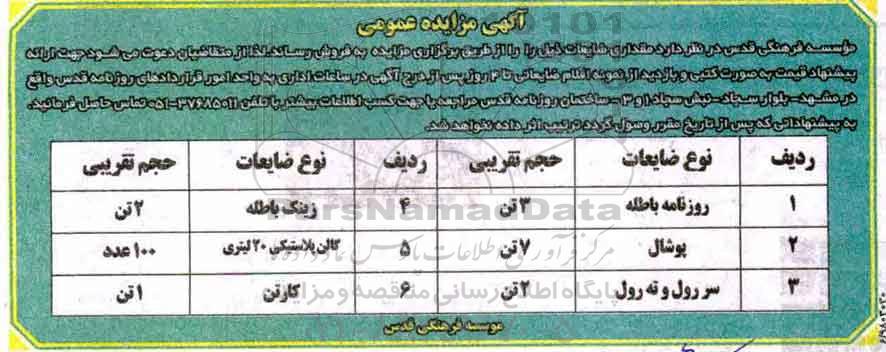 آگهی مزایده عمومی
مؤسسه فرهنگی قدس در نظر دارد مقداری ضایعات ذیل را را از طریق برگزاری مزایده به فروش رساند. لذا از متقاضیان دعوت می شود جهت ارائه
پیشنهاد قیمت به صورت کتبی و بازدید از نمونه اقلام ضایعاتی تا ۴ روز پس از درج آگهی در ساعات اداری به واحد امور قراردادهای روزنامه قدس واقع
در مشهد- بلوار سجاد- نبش سجاد ۱ و ۳ - ساختمان روزنامه قدس مراجعه یا جهت کسب اطلاعات بیشتر با تلفن ۳۷۶۸۵۰۱۱-۰۵۱ تماس حاصل فرمائید.
به پیشنهاداتی که پس از تاریخ مقرر وصول گردد ترتیب اثر داده نخواهد شد.
ردیف نوع ضایعات حجم تقریبی ردیف نوع ضایعات حجم تقریبی
۱ روزنامه باطله ۳ تن ۴ زینک باطله ۲ تن
۲ پوشال ۷ تن ۵ گالن پلاستیکی ۲۰ لیتری ۱۰۰ عدد
۳ سر رول و ته رول ۲ تن ۶ کارتن ۱ تن
موسسه فرهنگی قدس
ParsNamadData
پایگاه اطلاع رسانی مناقصه و مزایده